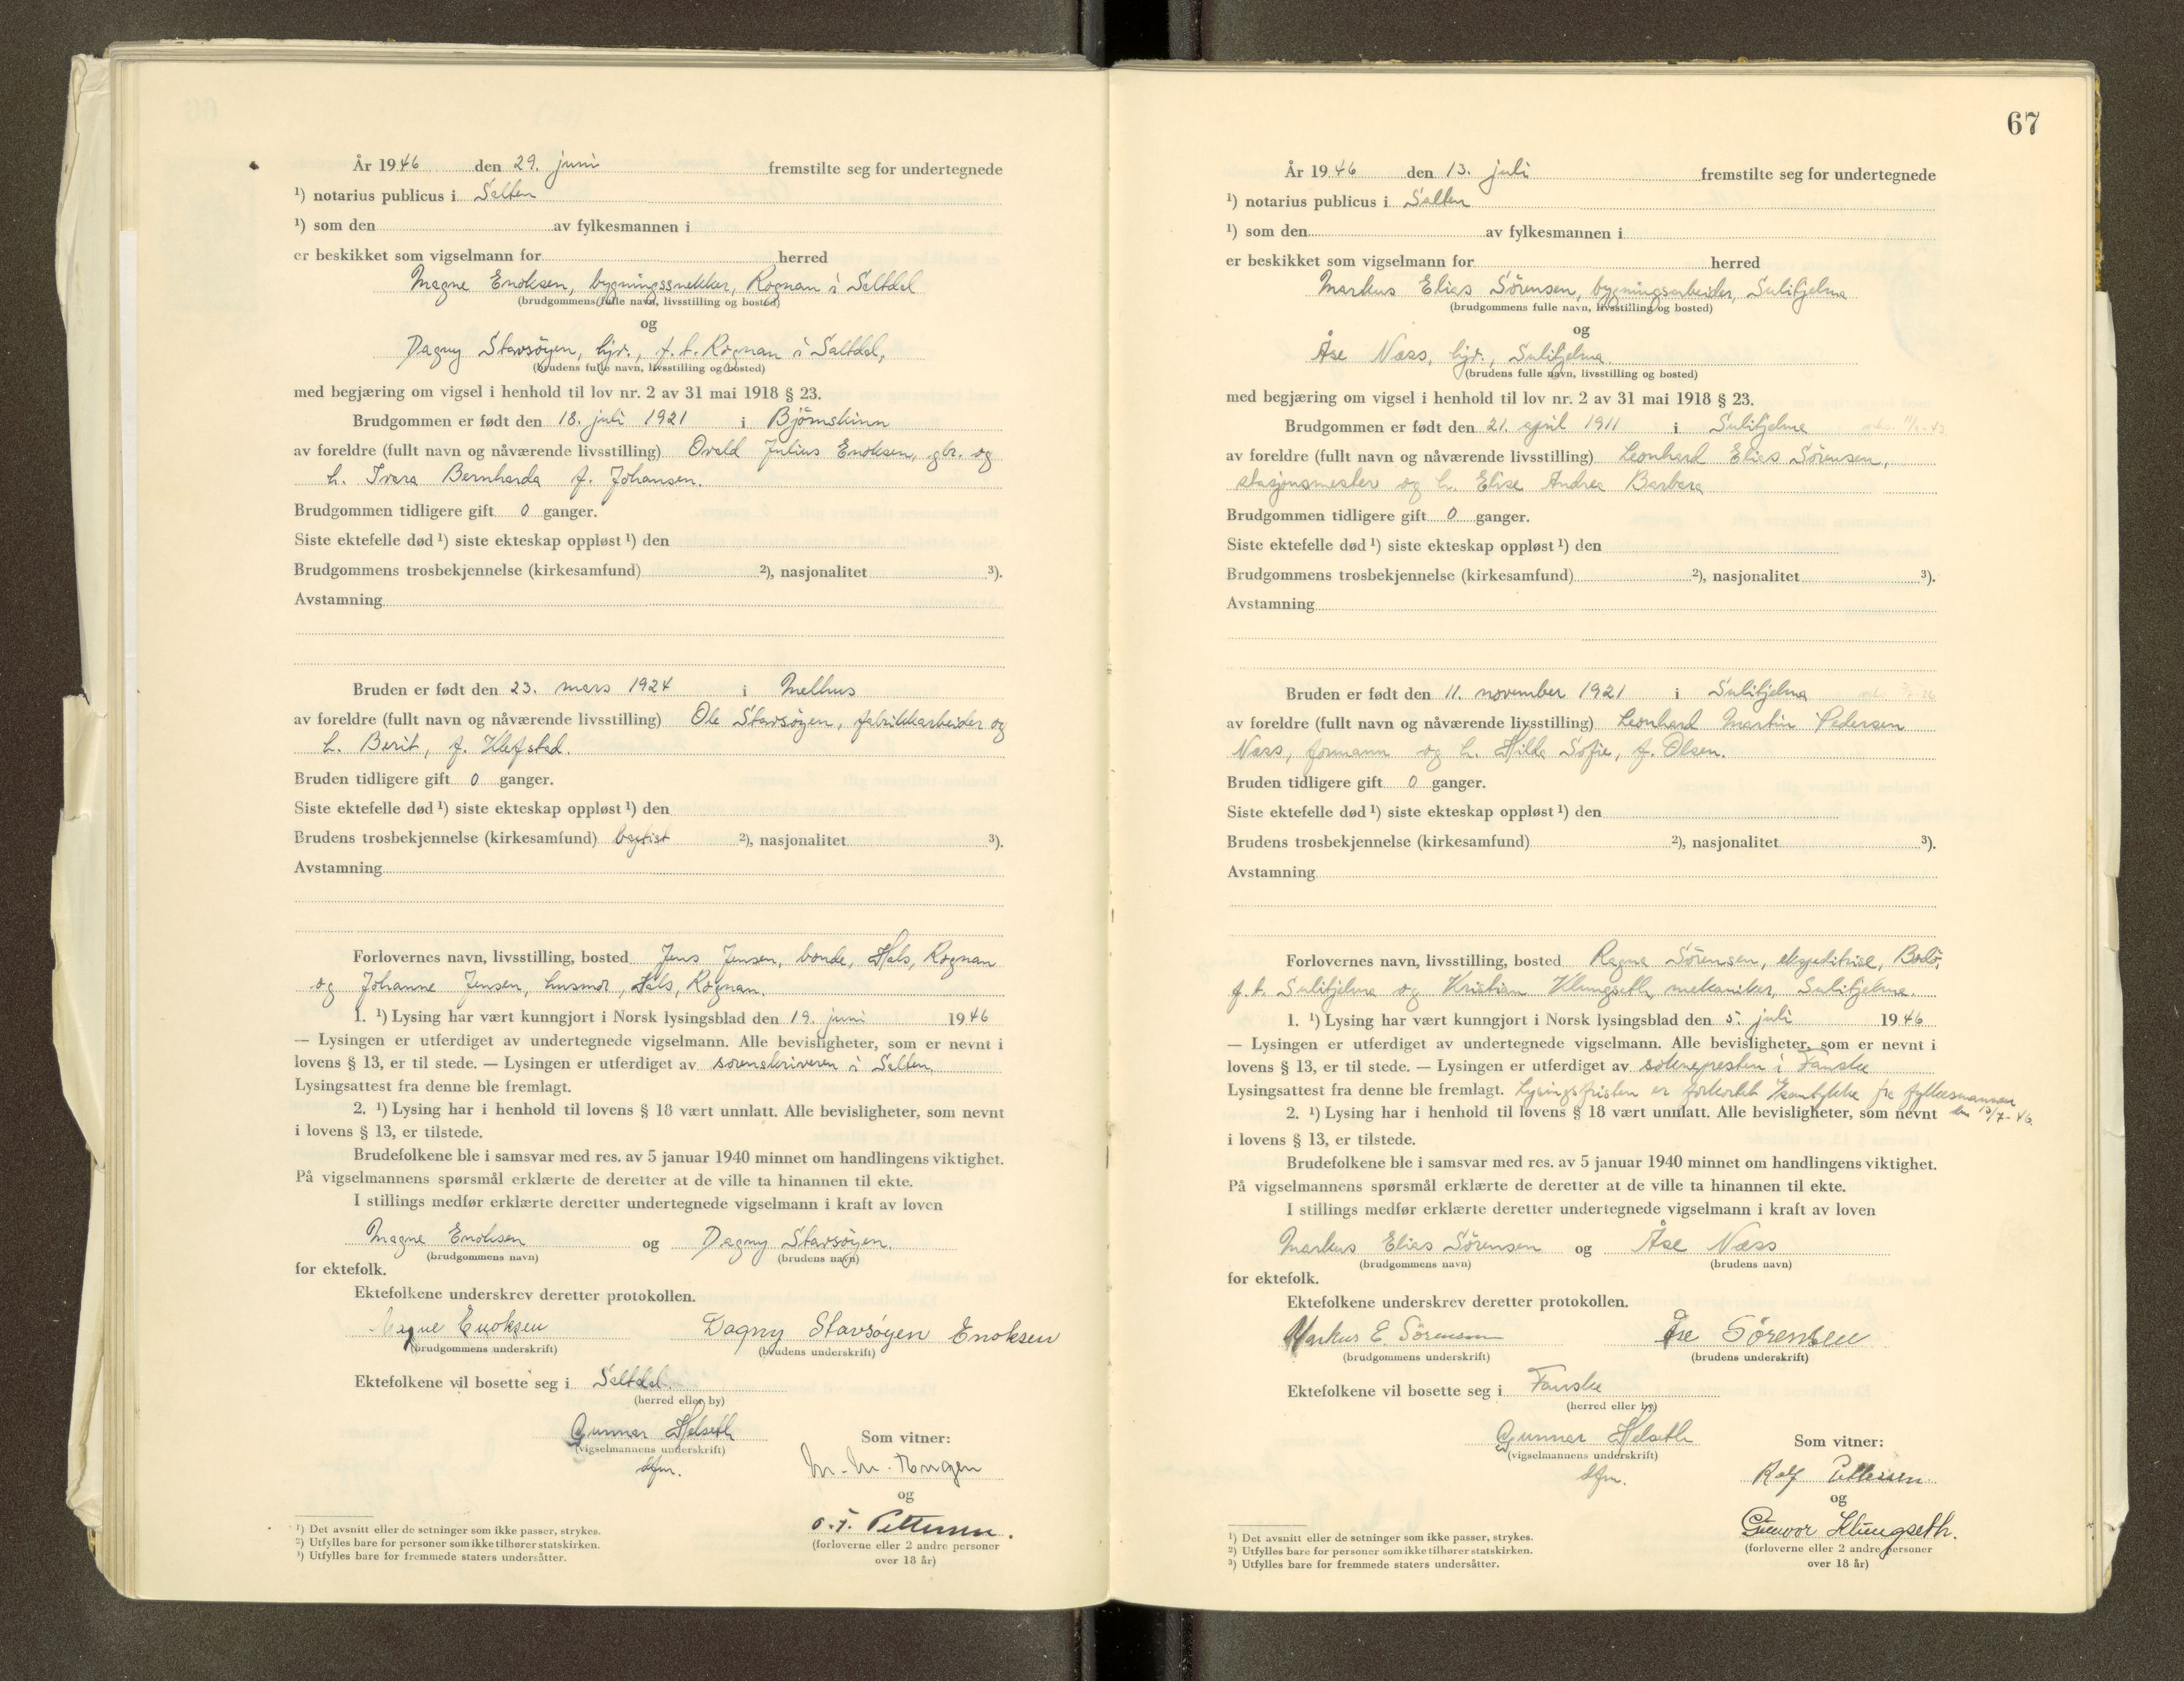 År 1946 den 29. juni fremstilte seg for undertegnede
¹) notarius publicus i Salten
¹) som den av fylkesmannen i
er beskikket som vigselmann for herred
Magne Enoksen, bygningssnekker, Rognan i Saltdal
(brudgommens fulle navn, livsstilling og bosted)
og
Dagny Stavsöyen, hjv., f.t. Rognan i Saltdal,
(brudens fulle navn, livsstilling og bosted)
med begjæring om vigsel i henhold til lov nr. 2 av 31 mai 1918 § 23.
Brudgommen er født den 18. juli 1921 i Björnskinn
av foreldre (fullt navn og nåværende livsstilling) Ovald Julius Enoksen, gbr. og
h. Ivara Bernharda f. Johansen.
Brudgommen tidligere gift 0 ganger.
Siste ektefelle død ¹) siste ekteskap oppløst ¹) den
Brudgommens trosbekjennelse (kirkesamfund) ²), nasjonalitet ³).
Avstamning
Bruden er født den 23. mars 1924 i Melhus
av foreldre (fullt navn og nåværende livsstilling) Ole Stavsöyen, fabrikkarbeider og
h. Berit, f. Klefstad.
Bruden tidligere gift 0 ganger.
Siste ektefelle død ¹) siste ekteskap oppløst ¹) den
Brudens trosbekjennelse (kirkesamfund) baptist ²), nasjonalitet ³).
Avstamning
Forlovernes navn, livsstilling, bosted Jens Jensen, bonde, Hals, Rognan
og Johanne Jensen, husmor, Hals, Rognan.
1. ¹) Lysing har vært kunngjort i Norsk lysingsblad den 19. juni 1946
— Lysingen er utferdiget av undertegnede vigselmann. Alle bevisligheter, som er nevnt i
lovens § 13, er til stede. — Lysingen er utferdiget av sorenskriveren i Salten.
Lysingsattest fra denne ble fremlagt.
2. ¹) Lysing har i henhold til lovens § 18 vært unnlatt. Alle bevisligheter, som nevnt
i lovens § 13, er tilstede.
Brudefolkene ble i samsvar med res. av 5 januar 1940 minnet om handlingens viktighet.
På vigselmannens spørsmål erklærte de deretter at de ville ta hinannen til ekte.
I stillings medfør erklærte deretter undertegnede vigselmann i kraft av loven
Magne Enoksen og Dagny Stavsöyen.
(brudgommens navn) (brudens navn)
for ektefolk.
Ektefolkene underskrev deretter protokollen.
Magne Enoksen Dagny Stavsöyen Enoksen
(brudgommens underskrift) (brudens underskrift)
Ektefolkene vil bosette seg i Saltdal.
(herred eller by)
Gunnar Helseth Som vitner:
(vigselmannens underskrift)
dfm.
og
O. J. Pettersen.
(forloverne eller 2 andre personer
over 18 år)
¹) Det avsnitt eller de setninger som ikke passer, strykes.
²) Utfylles bare for personer som ikke tilhører statskirken.
³) Utfylles bare for fremmede staters undersåtter.
67
År 1946 den 13. juli fremstilte seg for undertegnede
¹) notarius publicus i Salten
¹) som den av fylkesmannen i
er beskikket som vigselmann for herred
Markus Elias Sörensen, bygningsarbeider, Sulitjelma
(brudgommens fulle navn, livsstilling og bosted)
og
Åse Næss, hjv., Sulitjelma
(brudens fulle navn, livsstilling og bosted)
med begjæring om vigsel i henhold til lov nr. 2 av 31 mai 1918 § 23.
Brudgommen er født den 21. april 1911 i Sulitjelma
av foreldre (fullt navn og nåværende livsstilling) Leonhard Elias Sörensen,
stasjonsmester og h. Elise Andrea Barbara
Brudgommen tidligere gift 0 ganger.
Siste ektefelle død ¹) siste ekteskap oppløst ¹) den
Brudgommens trosbekjennelse (kirkesamfund) ²), nasjonalitet ³).
Avstamning
Bruden er født den 11. november 1921 i Sulitjelma
av foreldre (fullt navn og nåværende livsstilling) Leonhard Martin Pedersen
Næss, formann og h. Hilda Sofie, f. Olsen.
Bruden tidligere gift 0 ganger.
Siste ektefelle død ¹) siste ekteskap oppløst ¹) den
Brudens trosbekjennelse (kirkesamfund) ²), nasjonalitet ³).
Avstamning
Forlovernes navn, livsstilling, bosted Ragna Sörensen, ekspeditrise, Bodö,
f.t. Sulitjelma og Kristian Klungseth, mekaniker, Sulitjelma.
1. ¹) Lysing har vært kunngjort i Norsk lysingsblad den 5. juli 1946
— Lysingen er utferdiget av undertegnede vigselmann. Alle bevisligheter, som er nevnt i
lovens § 13, er til stede. — Lysingen er utferdiget av soknepresten i Fauske
Lysingsattest fra denne ble fremlagt. Lysingsfristen er forkortet samtykke fra fylkesmannen
2. ¹) Lysing har i henhold til lovens § 18 vært unnlatt. Alle bevisligheter, som nevnt den 13/7-46.
i lovens § 13, er tilstede.
Brudefolkene ble i samsvar med res. av 5 januar 1940 minnet om handlingens viktighet.
På vigselmannens spørsmål erklærte de deretter at de ville ta hinannen til ekte.
I stillings medfør erklærte deretter undertegnede vigselmann i kraft av loven
Markus Elias Sörensen og Åse Næss
(brudgommens navn) (brudens navn)
for ektefolk.
Ektefolkene underskrev deretter protokollen.
Markus E. Sörensen Åse Sörensen
(brudgommens underskrift) (brudens underskrift)
Ektefolkene vil bosette seg i Fauske
(herred eller by)
Gunnar Helseth Som vitner:
(vigselmannens underskrift)
dfm. Rolf Pettersen
og
Gunvor Klungseth.
(forloverne eller 2 andre personer
over 18 år)
¹) Det avsnitt eller de setninger som ikke passer, strykes.
²) Utfylles bare for personer som ikke tilhører statskirken.
³) Utfylles bare for fremmede staters undersåtter.